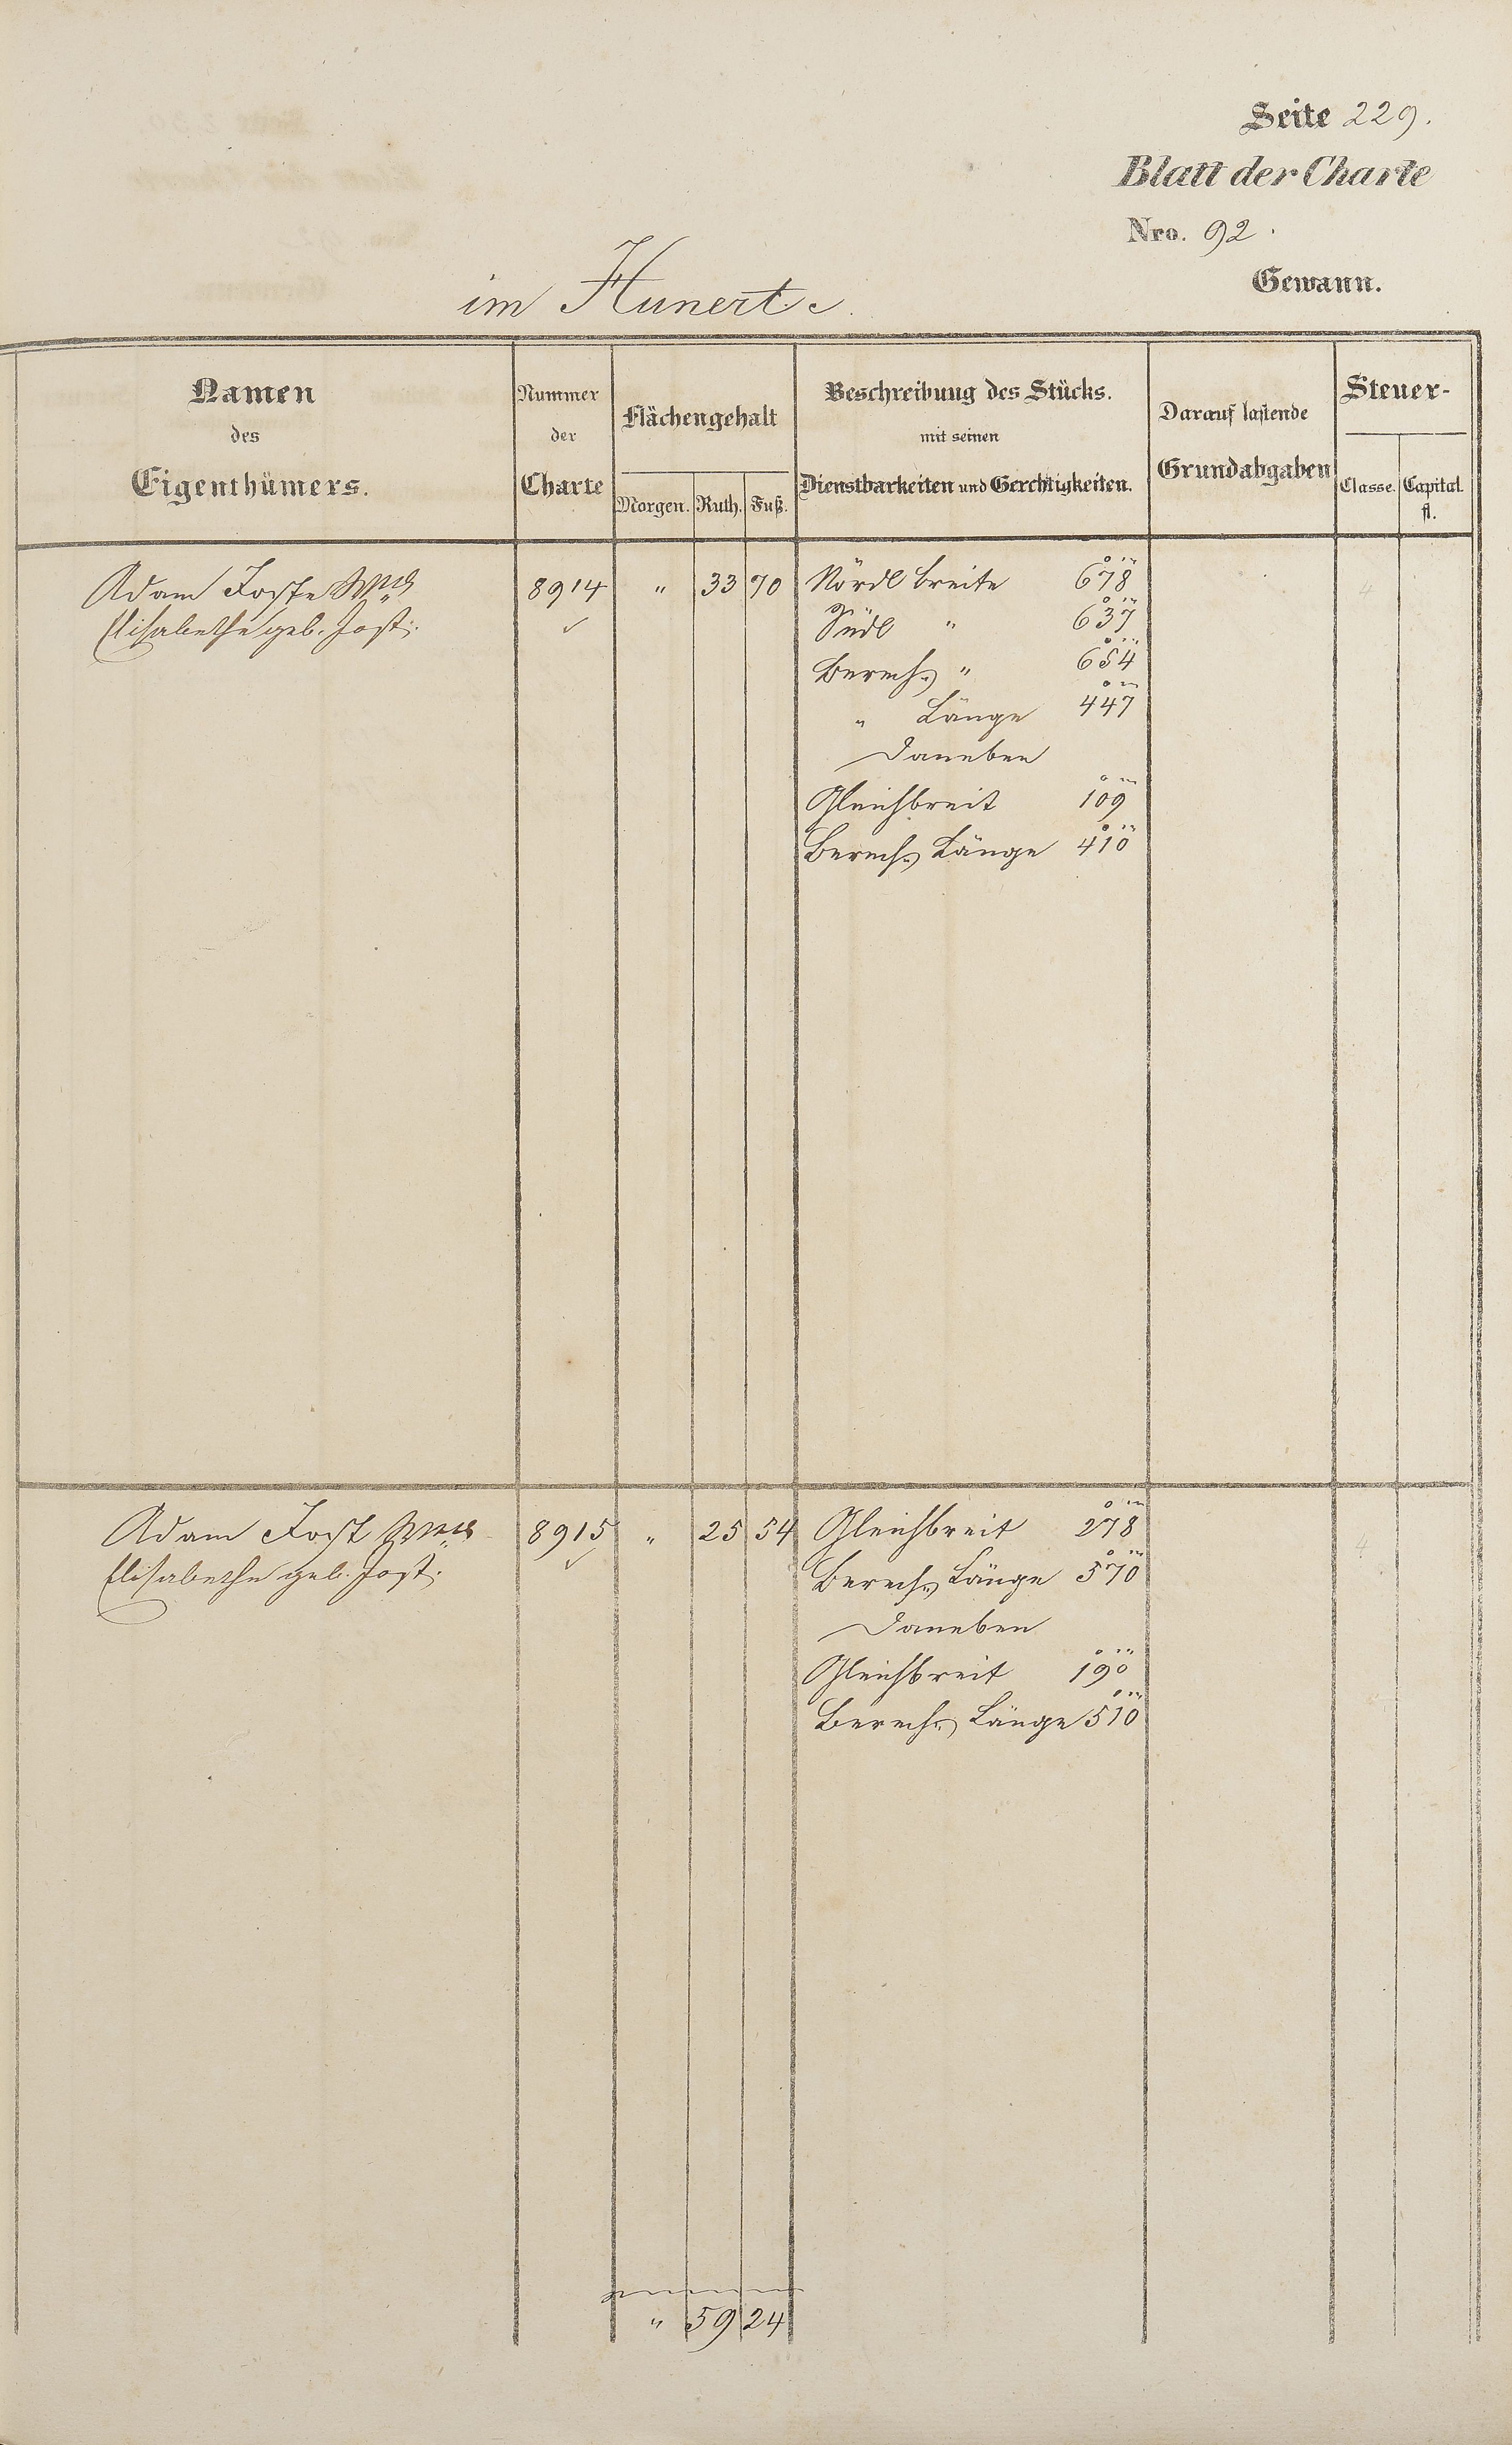 Seite 229.
Blatt der Charte
Nro. 92.
Gewann.
im Hunert
Namen des Eigenthümers.
Nummer der Charte
Flächengehalt
Morgen. Ruth. Fuß.
Beschreibung des Stücks.
mit seinen
Dienstbarkeiten und Gerechtigkeiten.
Darauf lastende
Grundabgaben
Steuer-
Classe. Capital.
fl.
Adam Joste 8914 " 33 70 Nördl breite 678
Elisabethe geb. Jost. Südl " 637
Berech. " 654
" Länge 447
Daneben
Gleichbreit 109
Berech. Länge 410
4
Adam Jost 8915 " 25 54 Gleichbreit 278
Elisabethe geb. Jost. Berech. Länge 570
Daneben
Gleichbreit 190
Berech. Länge 510
4
" 59 24